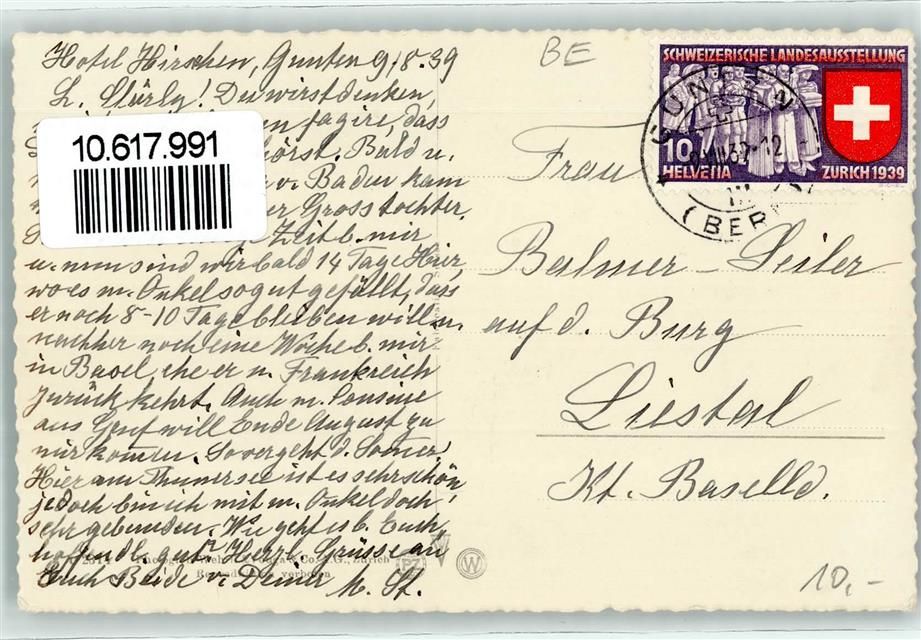 Hotel Hirschen, Gunten 9/8.39
L. Stürly! Du wirst denken,
en fagire, dass
hörst. Bald n.
v. Baden kam
er Grosstochter.
Zeit b. mir
u. nun sind wir bald 14 Tage Hier,
wo es m. Onkel so gut gefällt, dass
er noch 8-10 Tage bleiben will u.
nachher noch eine Woche b. mir
in Basel, ehe er n. Frankreich
zurück kehrt. Auch m. Cousine
aus Genf will Ende August zu
mir kommen. So vergeht d. Somer!
Hier am Thunersee ist es sehr schön,
jedoch bin ich mit m. Onkel doch
sehr gebunden. Wie geht es b. Euch
hoffendl. gut? Herzl. Grüsse an
Euch Beide v. Deiner M. St.
10.617.991
BE
SCHWEIZERISCHE LANDESAUSSTELLUNG
10
HELVETIA ZÜRICH 1939
GUNTEN
(BERN)
Frau
Balmer-Seiler
auf d. Burg
Liestal
Kt. Baselld.
10,-
Co. A.G., Zürich
verboten
W